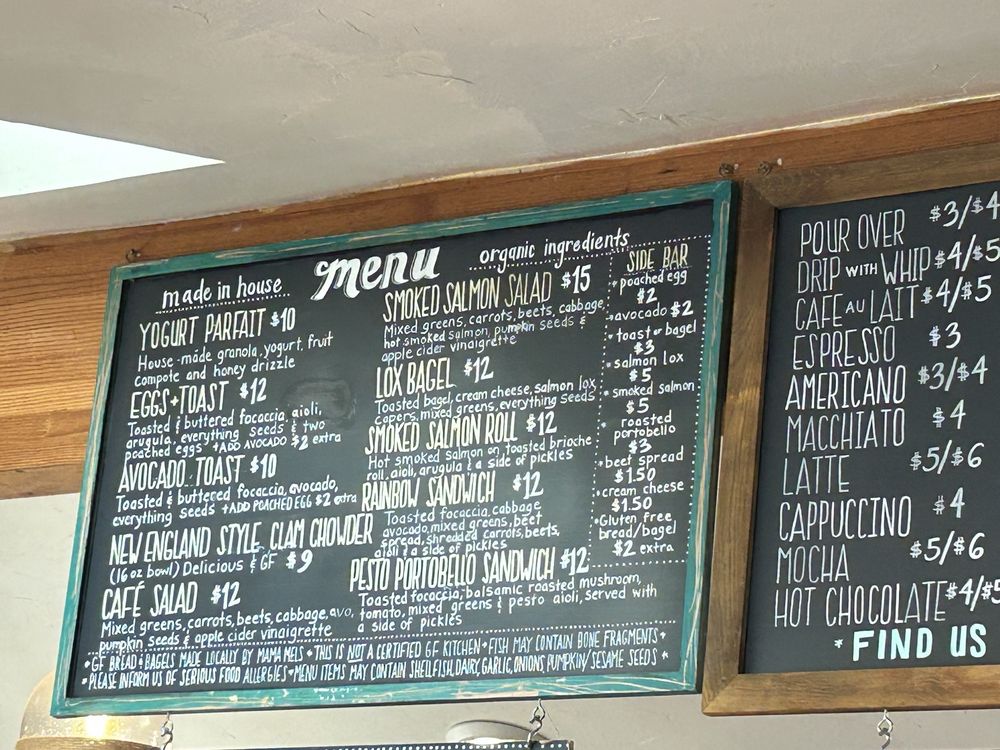 menu
made in house
organic ingredients
YOGURT PARFAIT $10
House-made granola, yogurt, fruit
compote and honey drizzle
EGGS + TOAST $12
Toasted & buttered focaccia, aioli,
arugula, everything seeds & two
poached eggs +ADD AVOCADO $2 extra
AVOCADO TOAST $10
Toasted & buttered focaccia, avocado,
everything seeds +ADD POACHED EGG $2 extra
NEW ENGLAND STYLE CLAM CHOWDER
(16 oz bowl) Delicious & GF $9
CAFÉ SALAD $12
Mixed greens, carrots, beets, cabbage, avo,
pumpkin seeds & apple cider vinaigrette
SMOKED SALMON SALAD $15
Mixed greens, carrots, beets, cabbage,
hot smoked salmon, pumpkin seeds &
apple cider vinaigrette
LOX BAGEL $12
Toasted bagel, cream cheese, salmon lox,
capers, mixed greens, everything seeds
SMOKED SALMON ROLL $12
Hot smoked salmon on toasted brioche
roll, aioli, arugula & a side of pickles
RAINBOW SANDWICH $12
Toasted focaccia, cabbage
avocado, mixed greens, beet
spread, shredded carrots, beets,
aioli & a side of pickles
PESTO PORTOBELLO SANDWICH $12
Toasted focaccia, balsamic roasted mushroom,
tomato, mixed greens & pesto aioli, served with
a side of pickles
SIDE BAR
• poached egg
$2
• avocado $2
• toast or bagel
$3
• salmon lox
$5
• smoked salmon
$5
• roasted
portobello
$3
• beef spread
$1.50
• cream cheese
$1.50
• Gluten free
bread/bagel
$2 extra
• GF BREAD & BAGELS MADE LOCALLY BY MAMA MELS • THIS IS NOT A CERTIFIED GF KITCHEN • FISH MAY CONTAIN BONE FRAGMENTS •
• PLEASE INFORM US OF SERIOUS FOOD ALLERGIES • MENU ITEMS MAY CONTAIN SHELLFISH, DAIRY, GARLIC, ONIONS PUMPKIN/SESAME SEEDS •
POUR OVER $3/$4
DRIP WITH WHIP $4/$5
CAFE AU LAIT $4/$5
ESPRESSO $3
AMERICANO $3/$4
MACCHIATO $4
LATTE $5/$6
CAPPUCCINO $4
MOCHA $5/$6
HOT CHOCOLATE $4/$5
* FIND US